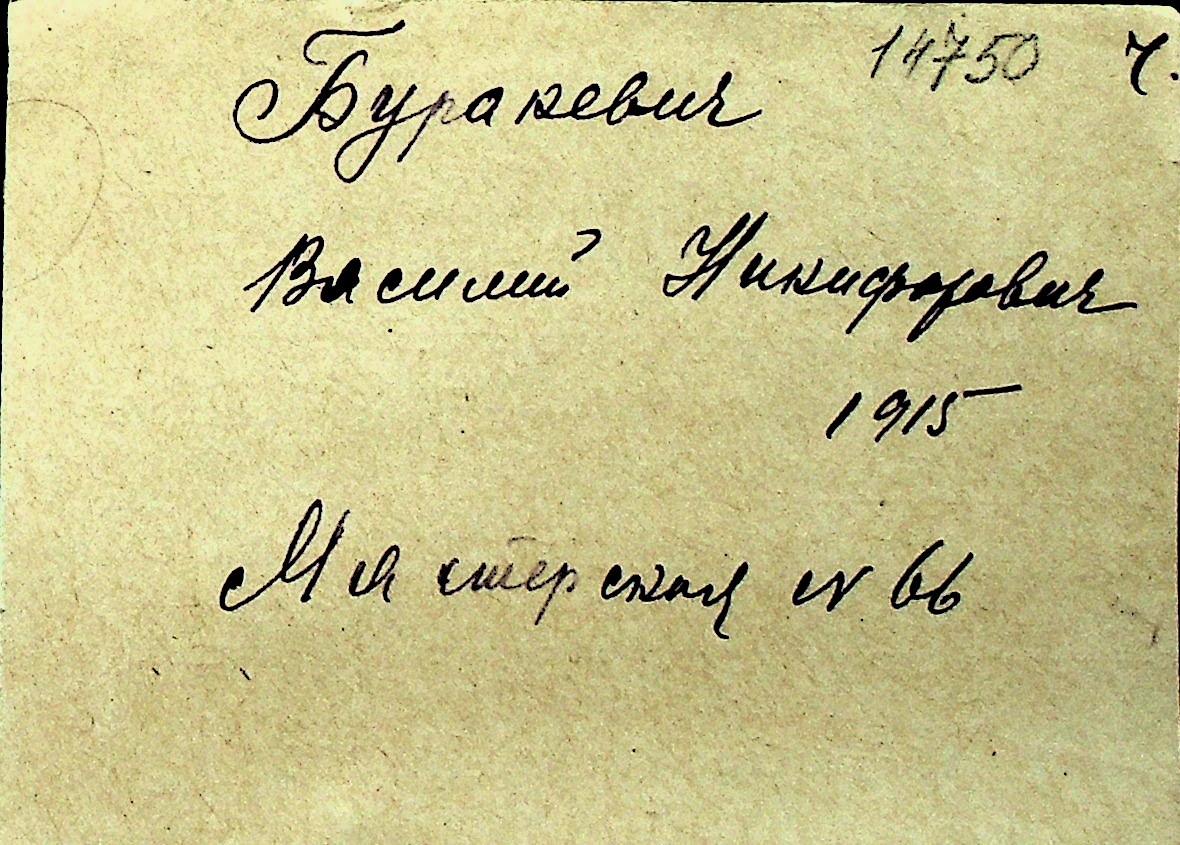 14750 Ч.
Буракевич
Василий Никифорович
1915
Мастерская № 66